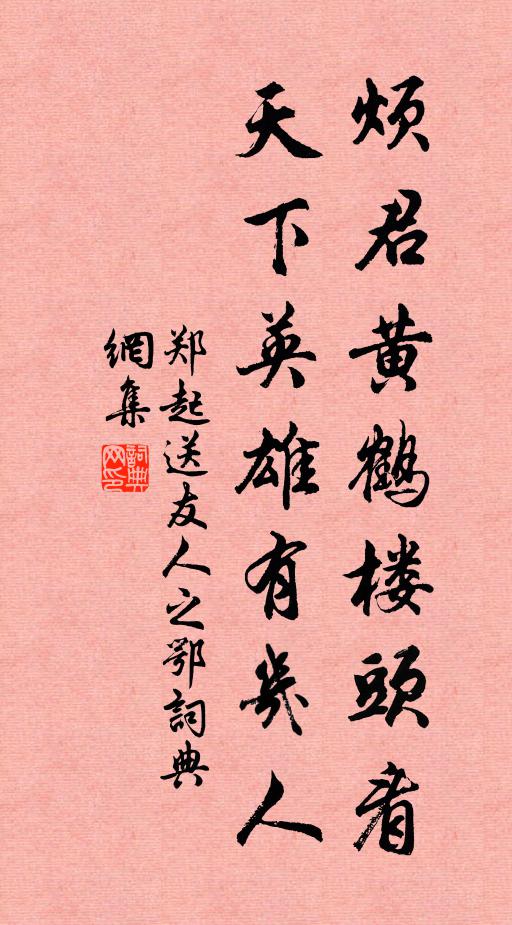 烦君黄鹤楼頭看
天下英雄有幾人
郑起送友人之鄂詞典
網集
詞典
网印